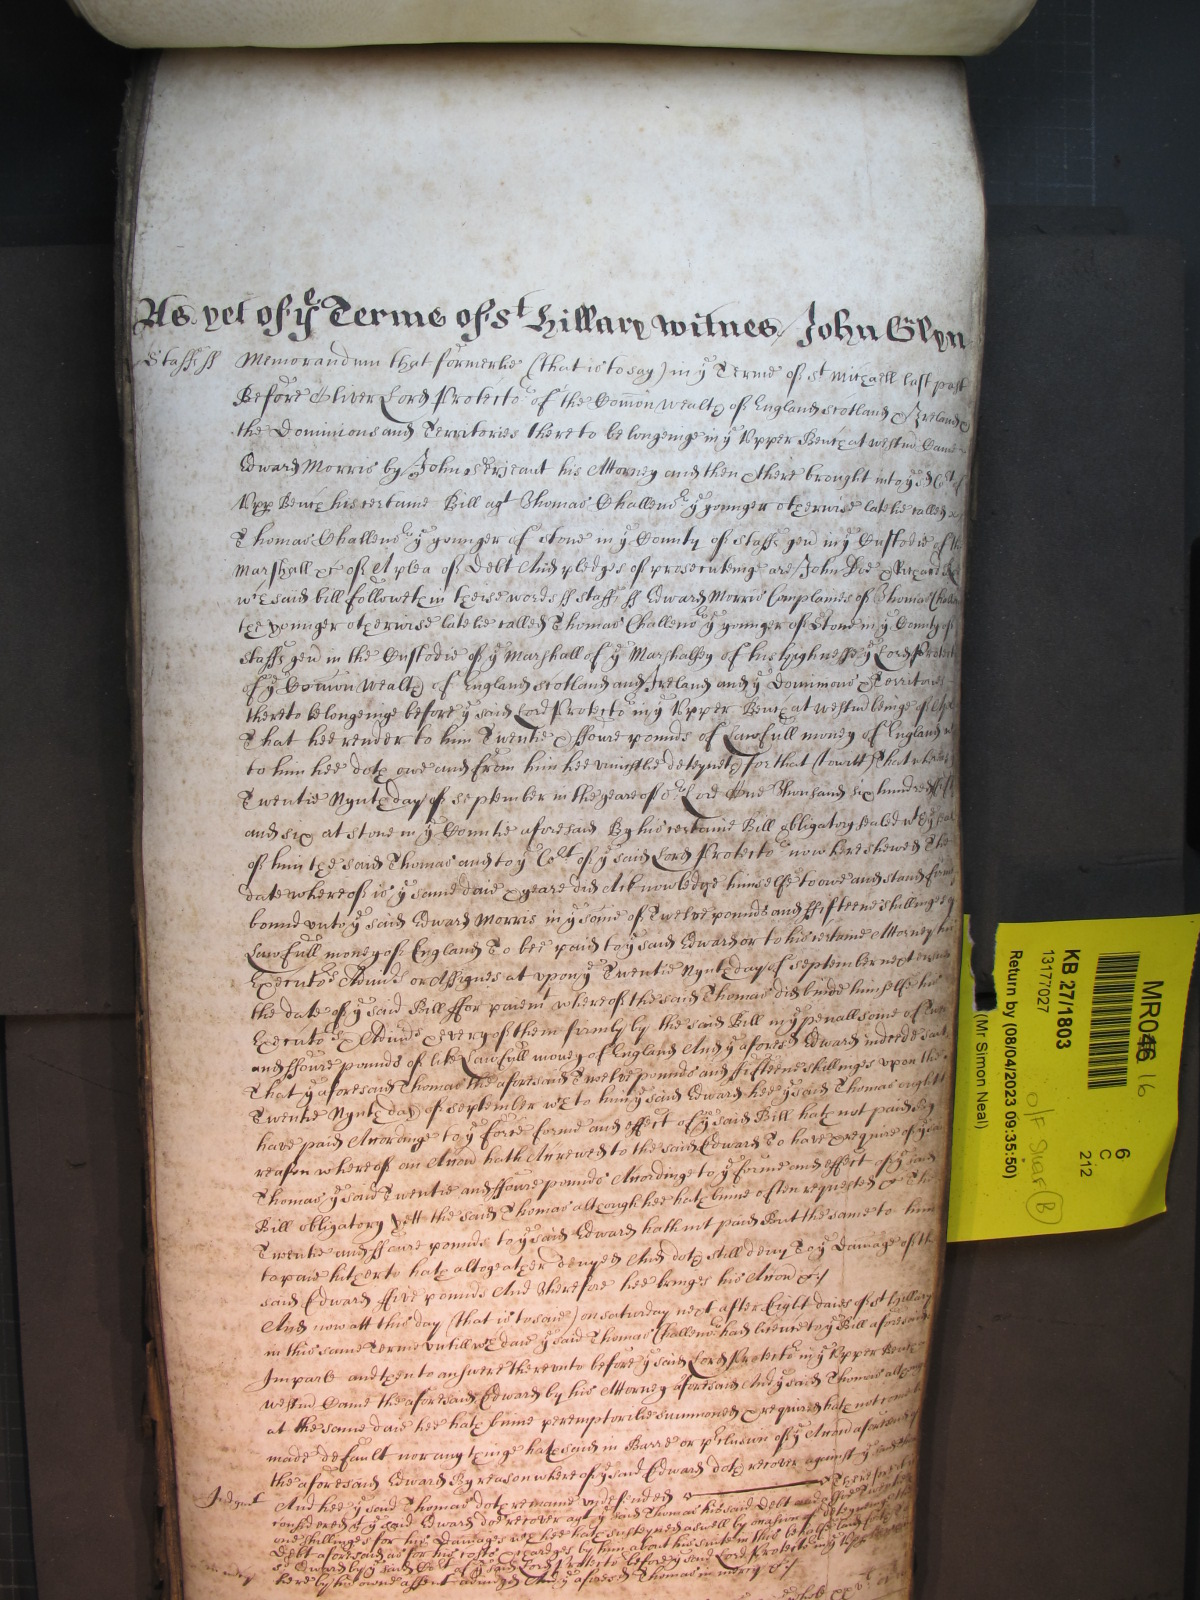 As yet of ye Terme of st Hillary witnes John Glyn
Staff ss Memorandum that formerlie (that is to say) in ye Terme of st Michaell last past
Before Oliver Lord Protector of the Common Wealth of England Scotland & Ireland &
the Dominions and Territories thereto belongeinge in ye Upper Bench at Westm Came
Edward Morris by John Serjeant his Attorney and then & there brought into ye sd Cot of
Upp Bench his certaine Bill agt Thomas Challenor ye younger otherwise latelie called
Thomas Challenor ye younger of Stone in ye County of Staff gent in ye Custodie of the
Marshall &c of A plea of Debt And pledges of prosecuteinge are John Doe & Richard Roe
wch said bill followeth in theise words ss Staff ss Edward Morris Complaines of Thomas Challenor
the younger otherwise latelie called Thomas Challenor ye younger of Stone in ye County of
Staff gent in the Custodie of ye Marshall of ye Marshalsey of his highnesse ye Lord Protector
of ye Common Wealth of England Scotland and Ireland and ye Dominions & Territories
thereto belongeinge before ye said Lord Protector in ye Upper Bench at Westm beinge of A plea
That hee render to him Twentie & ffoure pounds of Lawfull money of England wch
to him hee doth owe and from him hee uniustlie deteyneth for that (towitt) That whereas
Twentie Nynth day of September in the yeare of or Lord One Thousand six hundred fifty
and six at Stone in ye Countie aforesaid By his certaine Bill obligatory sealed wth ye seale
of him the said Thomas and to ye Cort of ye said Lord Protector now here shewed The
date whereof is ye same daie & yeare did Acknowledge himselfe to owe and stand firmely
bound unto ye said Edward Morris in ye some of Twelve pounds and ffifteene shillinges of
Lawfull money of England To bee paid to ye said Edward or to his certaine Attorney his
Executors Admrs or Assignes at upon ye Twentie Nynth day of September next ensuing
the date of ye said Bill ffor paient whereof the said Thomas did binde himselfe his
Executors & Admrs & every of them firmly by the said Bill in ye penall some of Twentie
and ffoure pounds of like Lawfull money of England And ye aforesd Edward indeede saith
That ye aforesaid Thomas the aforesaid Twelve pounds and ffifteene shillinges upon the
Twentie Nynth day of September wch to him ye said Edward hee ye said Thomas ought to
have paid Accordinge to ye force forme and effect of ye said Bill hath not paid By
reason whereof an Accon hath Accrewed to the said Edward To have & require of ye said
Thomas ye said Twentie and ffoure pounds Accordinge to ye forme and effect of ye said
Bill obligatory Yett the said Thomas although hee hath binne often requested &c The
Twentie and ffoure pounds to ye said Edward hath not paid But the same to him
to paie hitherto hath altogeather denyed And doth still deny To ye Damage of the
said Edward ffive pounds And Therefore hee bringes his Accon &c
And now att this day (that is to saie) on Saturday next after Eight daies of st Hillary
in this same Terme untill wch daie ye said Thomas Challenor had licence to ye Bill aforesaid
Imparle and then to answere thereunto before ye said Lord Protector in ye Upper Bench
Westm Came the aforesaid Edward by his Attorney aforesaid And ye said Thomas although
at the same daie hee hath binne peremptorilie summoned & required hath not come but
made default nor any thinge hath said in Barre or p'clusion of ye Accon aforesaid of
the aforesaid Edward By reason whereof ye said Edward doth recover against ye said
Judgmt And hee ye said Thomas doth remaine undefended Therefore it is
considered yt ye said Edward doe recover agt ye said Thomas his said Debt and ffive
one shillinges for his Damages wch hee hath susteyned aswell by occasion of deteyning the
Debt aforesaid as for his costs & charges by him about his suite in this behalfe laid forth
Edward by ye said Cort of ye said Lord Protector before ye said Lord Protector in ye Upper
here by his owne assent adiudged And ye aforesd Thomas in mercy &c
MR046
16
KB 27/1803
13177/027
Return by (08/04/2023 09:35:50)
(Mr Simon Neal)
6
C
212
O/F Shelf B